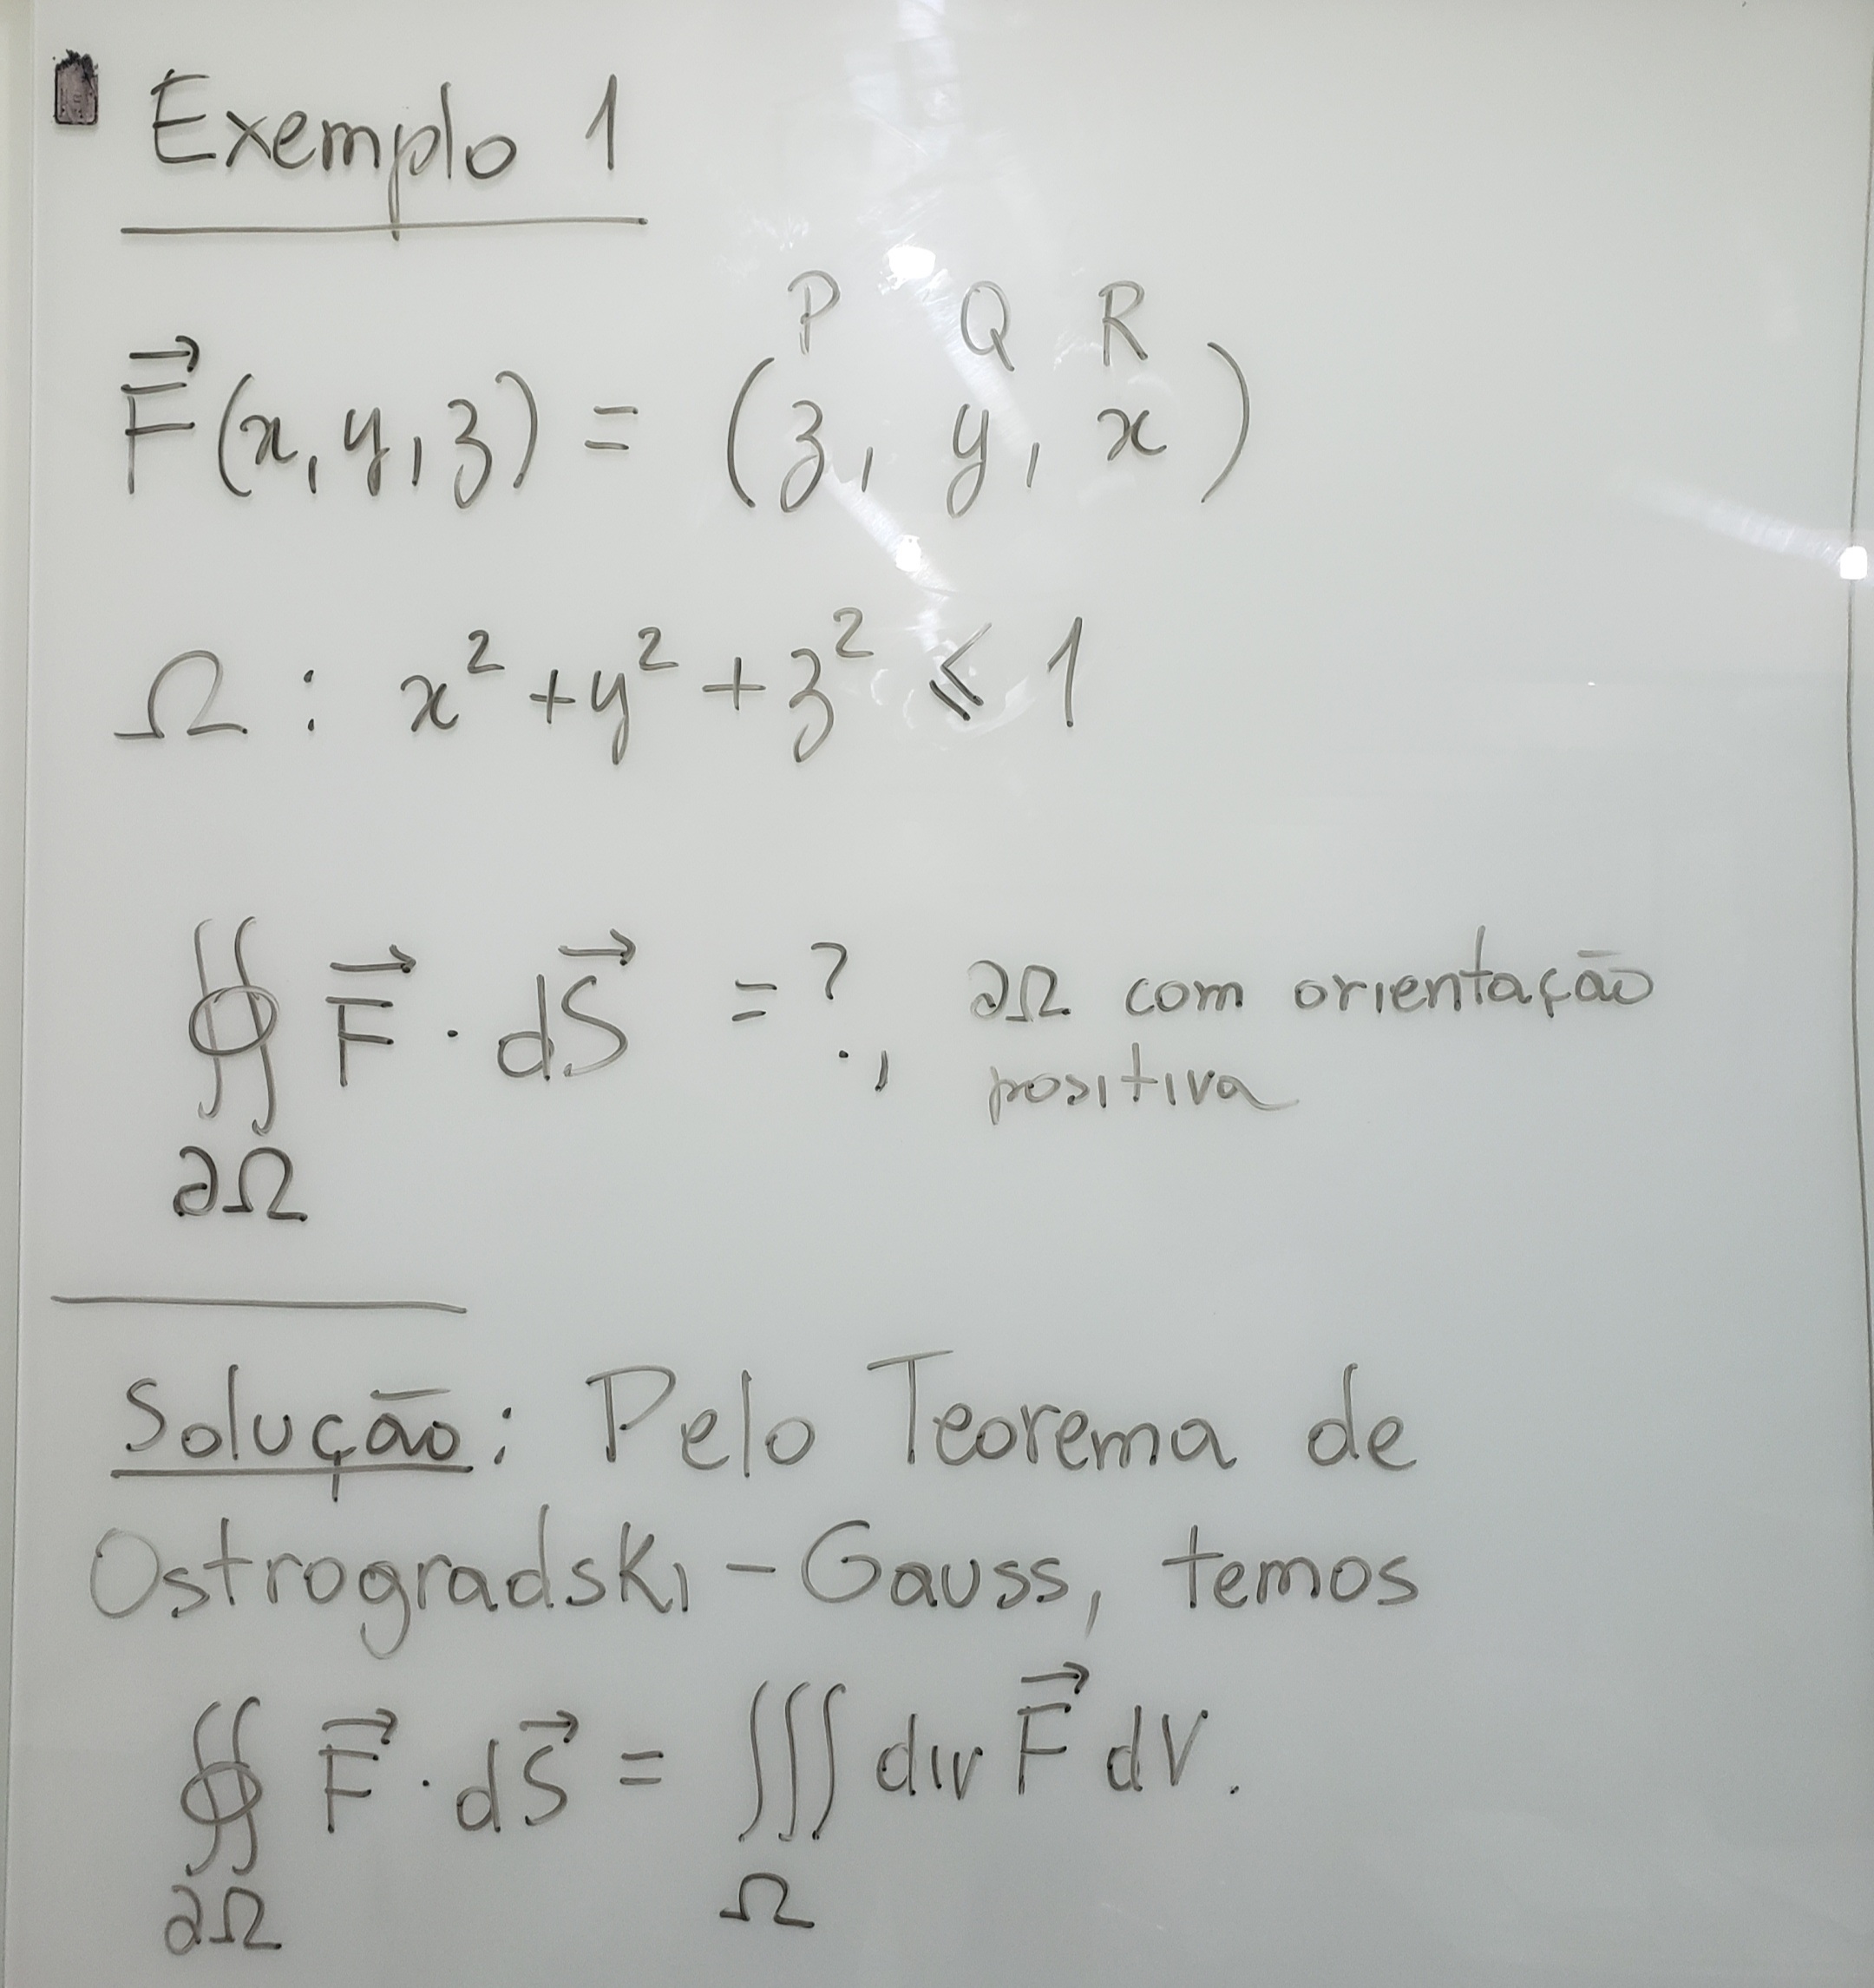 Exemplo 1
P Q R
F⃗(x, y, z) = (z, y, x)
Ω : x² + y² + z² ≤ 1
∯ F⃗ · dS⃗ = ?, ∂Ω com orientação
positiva
∂Ω
Solução: Pelo Teorema de
Ostrogradski - Gauss, temos
∯ F⃗ · dS⃗ = ∭ div F⃗ dV.
∂Ω Ω